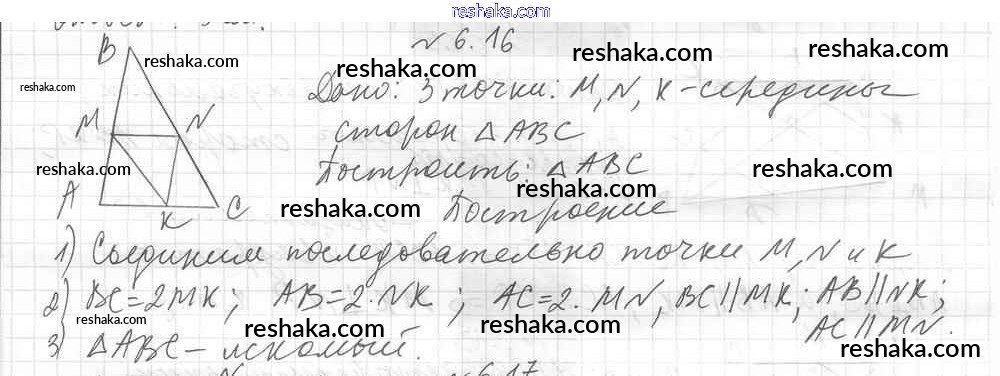 reshaka.com
№ 6.16
reshaka.com
reshaka.com
reshaka.com
reshaka.com
reshaka.com
B
Дано: 3 точки: M, N, K - середины
reshaka.com
M N
сторон △ ABC
reshaka.com
reshaka.com
Построить: △ ABC
reshaka.com
A K C
reshaka.com
Построение
reshaka.com
1) Соединим последовательно точки M, N и K
2) BC = 2MK; AB = 2·NK; AC = 2·MN, BC || MK; AB || NK;
AC || MN.
reshaka.com
reshaka.com
reshaka.com
reshaka.com
3) △ ABC - искомый.
№ 6.17